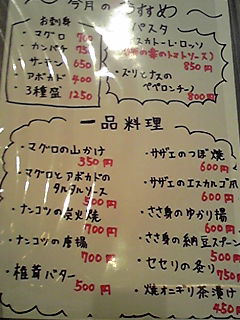 今月のおすすめ
お刺身
・マグロ 700
・カンパチ 750
・サーモン 650
・アボカド 400
・3種盛 1250
パスタ
ペスカトーレ・ロッソ
のトマトソース)
850円
・ズリとナスの
ペペロンチーノ
800円
一品料理
・マグロの山かけ
350円
・マグロとアボカドの
タルタルソース
500円
・ナンコツの炭火焼
700円
・ナンコツの唐揚
700円
・椎茸バター
500円
・サザエのつぼ焼
600円
・サザエのエスカルゴ風
600円
・ささ身のゆかり揚
600円
・ささ身の納豆スプーン
500円
・セセリの炙り
750円
・焼オニギリ茶漬け
450円